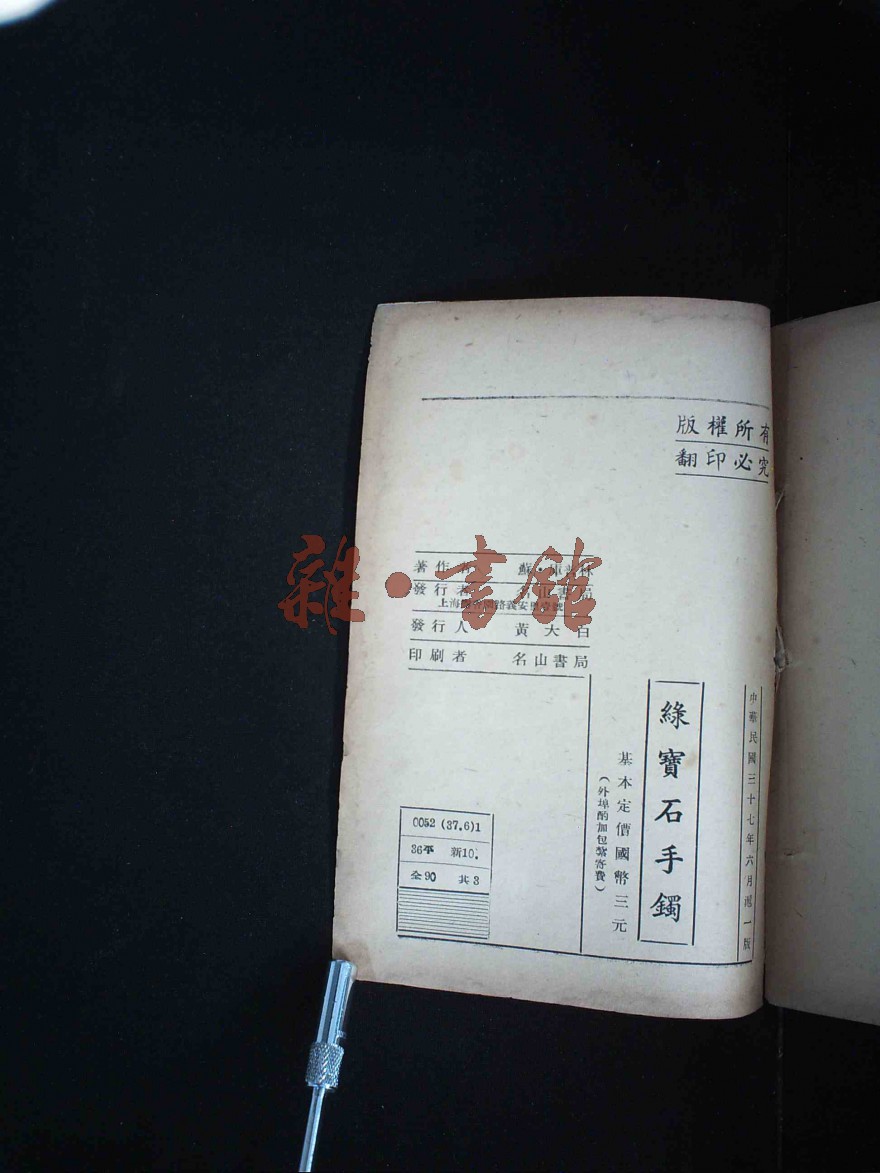 版權所有
翻印必究
中華民國三十七年六月滬一版
綠寶石手鐲
基本定價國幣三元
(外埠酌加包紮寄費)
著作 蘇
發行者 書局
上海 路義安里
發行人 黃大白
印刷者 名山書局
0052 (37.6)1
36平 新10.
全90 共3
雜·書館